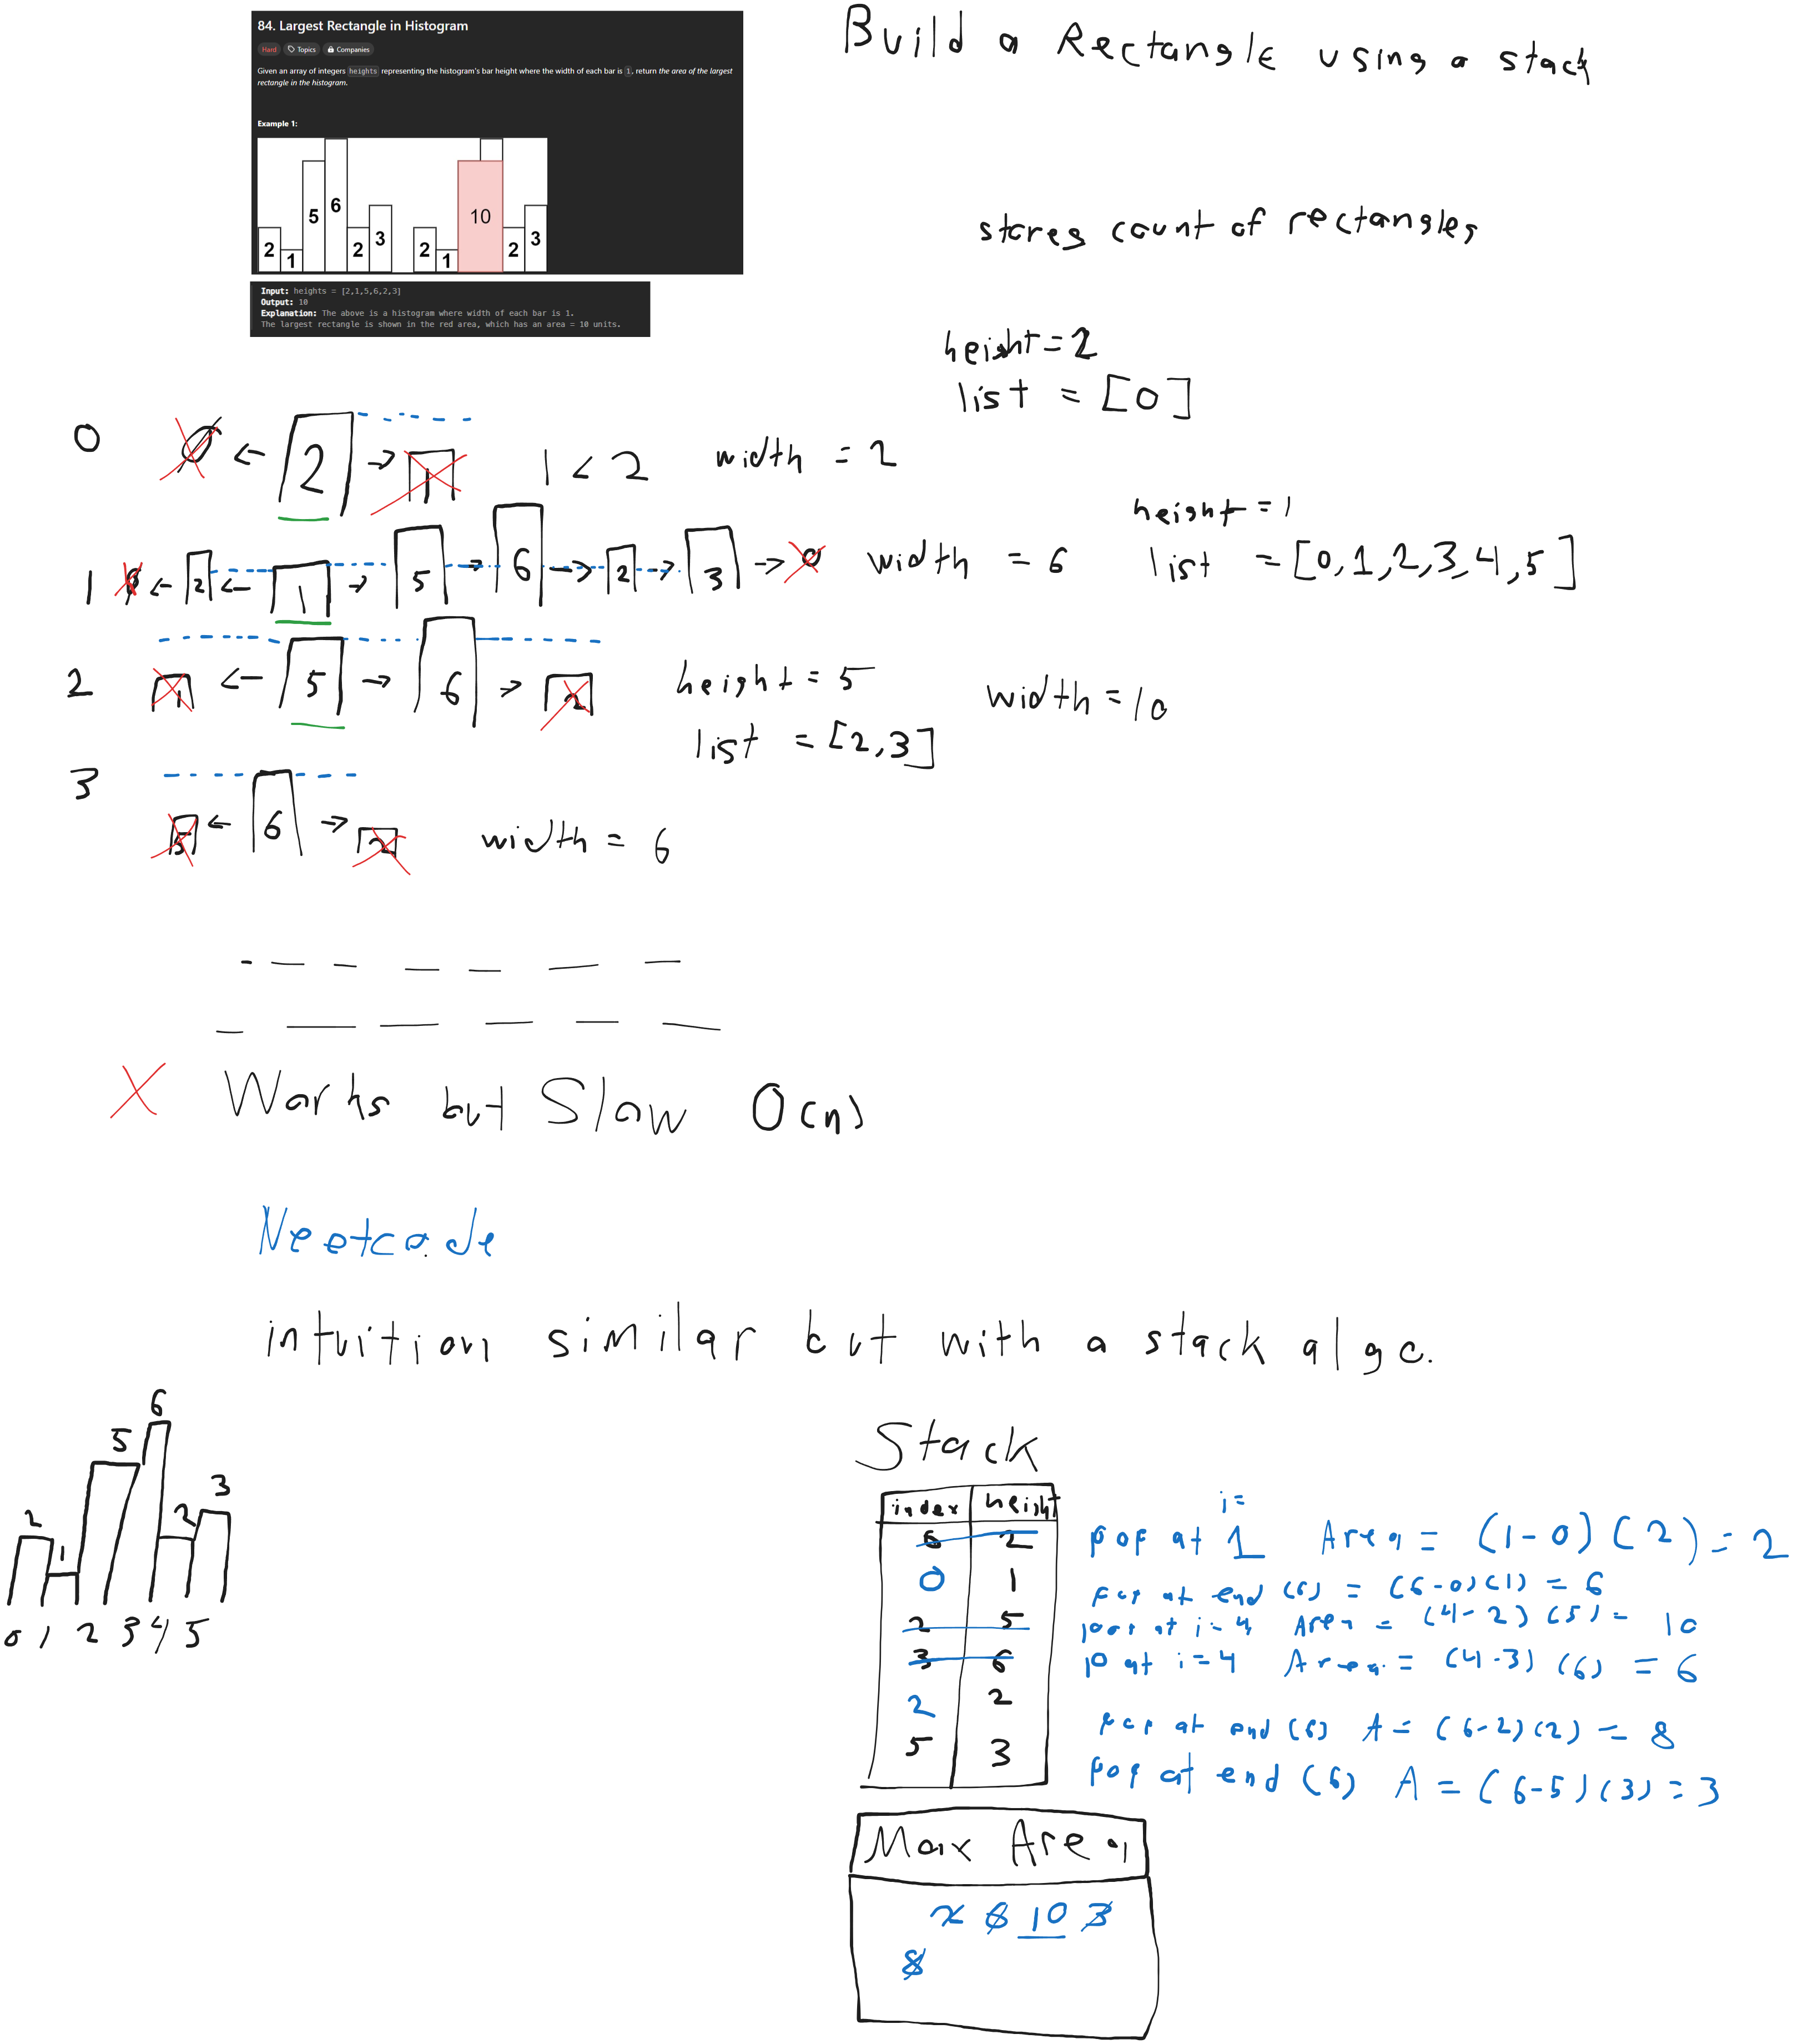 84. Largest Rectangle in Histogram
Hard Topics Companies
Given an array of integers heights representing the histogram's bar height where the width of each bar is 1, return the area of the largest
rectangle in the histogram.
Example 1:
2 1 5 6 2 3 2 1 10 2 3
Input: heights = [2,1,5,6,2,3]
Output: 10
Explanation: The above is a histogram where width of each bar is 1.
The largest rectangle is shown in the red area, which has an area = 10 units.
Build a Rectangle using a stack
stores count of rectangles
height = 2
list = [0]
0 0 ← 2 → 1 1 < 2 width = 2
height = 1
1 0 ← 2 ← 1 → 5 → 6 → 2 → 3 → 0 width = 6 list = [0,1,2,3,4,5]
2 1 ← 5 → 6 → 2 height = 5 width = 10
list = [2,3]
3 5 ← 6 → 2 width = 6
X Works but Slow O(n)
Neetcode
intuition similar but with a stack algo.
2 1 5 6 2 3
0 1 2 3 4 5
Stack
index height
i=
0 2 pop at 1 Area = (1-0)(2) = 2
0 1 pop at end (6) = (6-0)(1) = 6
2 5 pop at i=4 Area = (4-2)(5) = 10
3 6 10 at i=4 Area = (4-3)(6) = 6
2 2 pop at end (6) A = (6-2)(2) = 8
5 3 pop at end (6) A = (6-5)(3) = 3
Max Area
2 6 10 3
8